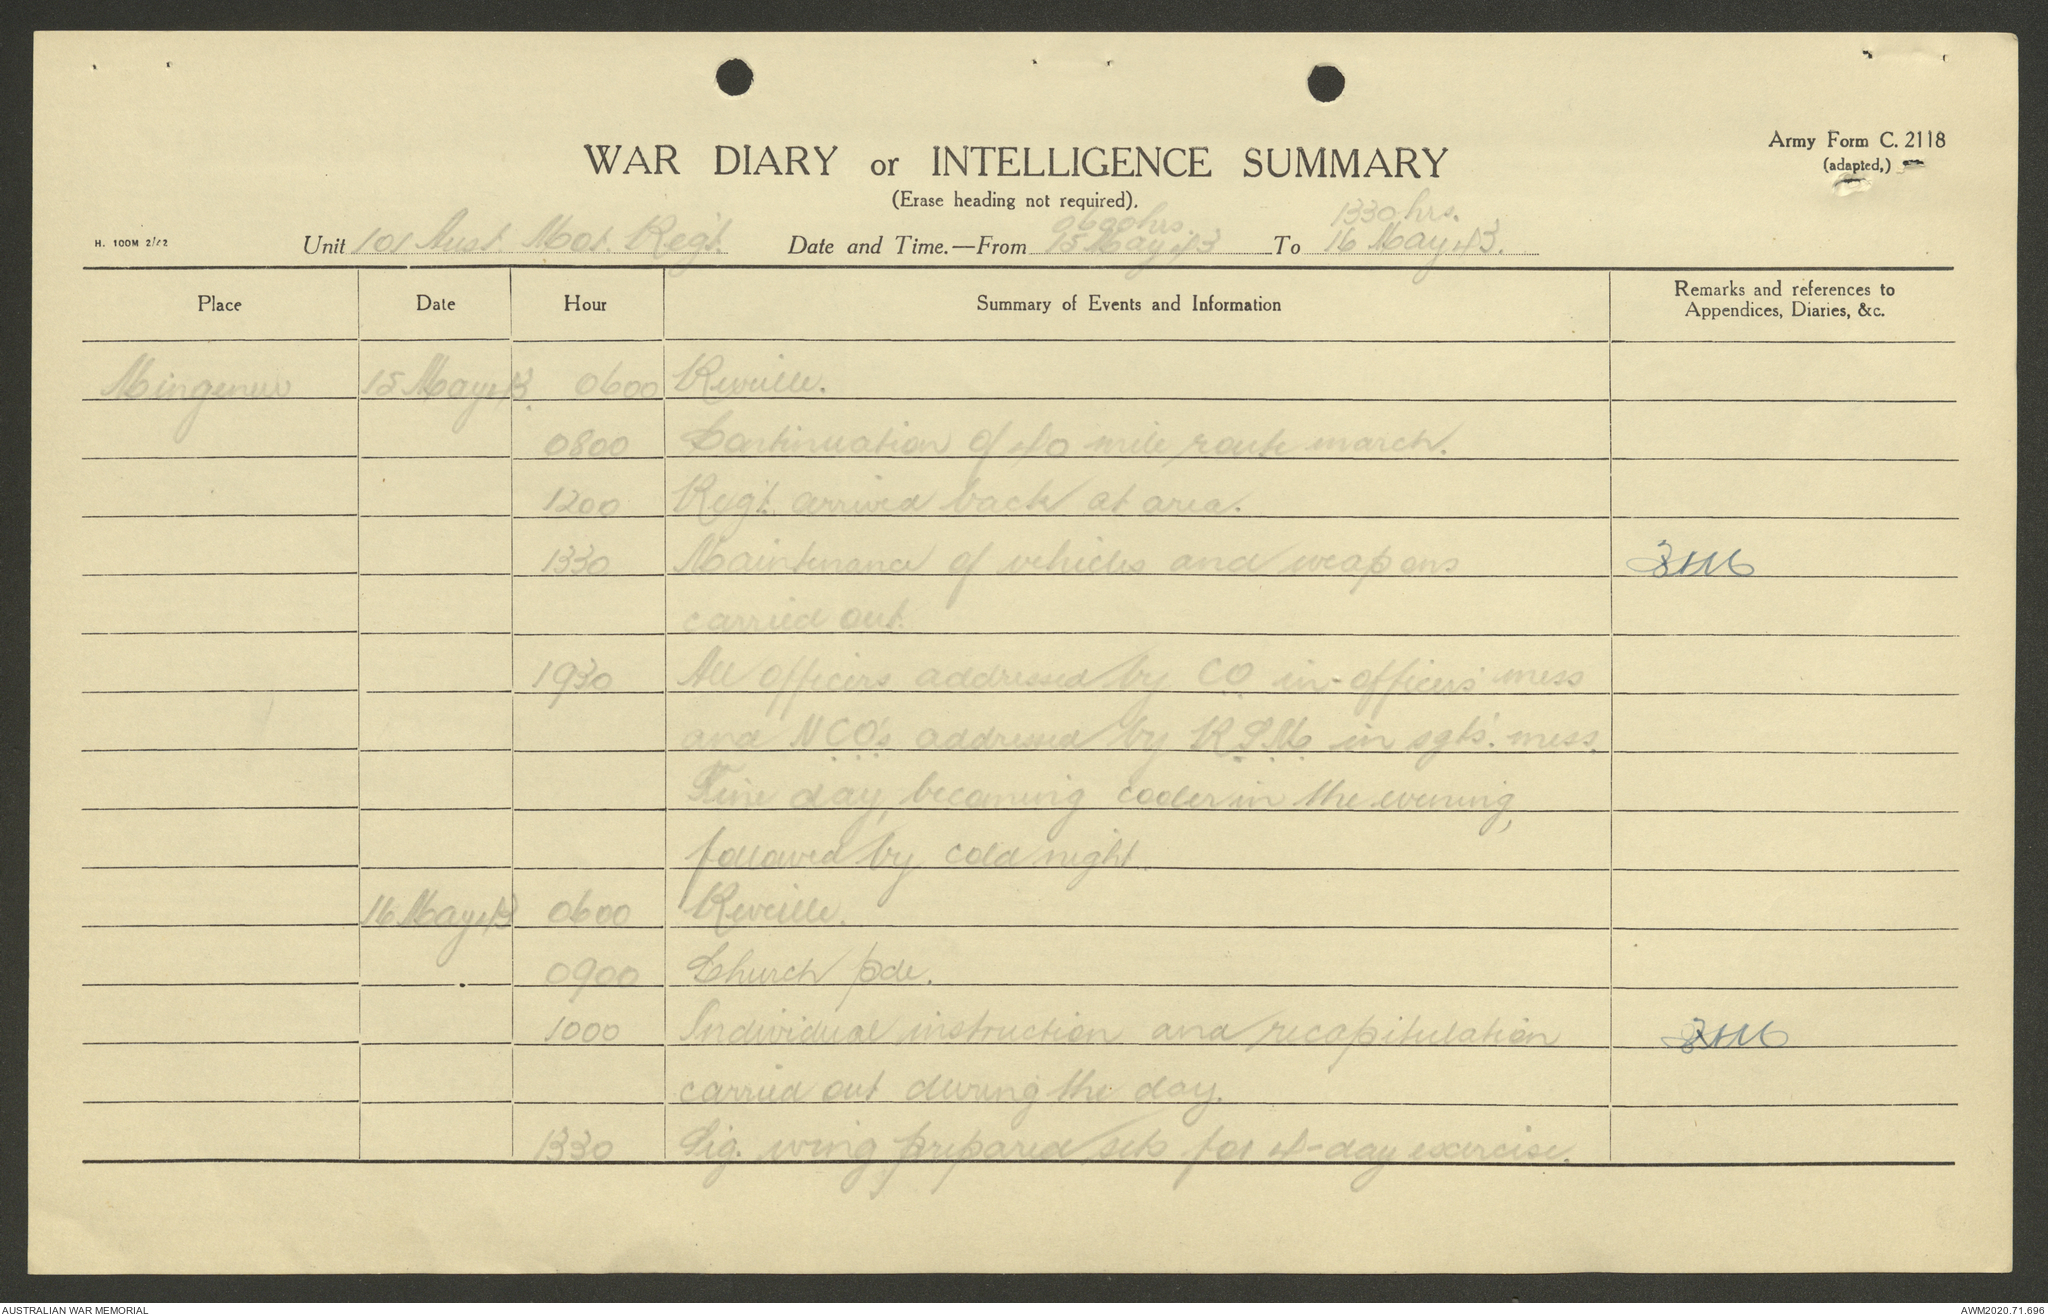 Army Form C. 2118
(adapted,)
WAR DIARY or INTELLIGENCE SUMMARY
(Erase heading not required).
H. 100M 2/42
Unit 101 Aust Mot. Regt. Date and Time.—From 0600hrs. 15 May 43 To 1330 hrs. 16 May 43.
Place Date Hour Summary of Events and Information Remarks and references to Appendices, Diaries, &c.
Mingenew 15 May 43. 0600 Reveille.
0800 Continuation of 40 mile route march.
1200 Regt. arrived back at area.
1330 Maintenance of vehicles and weapons
carried out.
1930 All officers addressed by CO in officers' mess
and NCO's addressed by R.S.M. in sgts'. mess.
Fine day, becoming cooler in the evening,
followed by cold night.
16 May 43 0600 Reveille.
0900 Church pde.
1000 Individual instruction and recapitulation
carried out during the day.
1330 Sig. wing prepared sets for 4-day exercise.
AUSTRALIAN WAR MEMORIAL
AWM2020.71.696